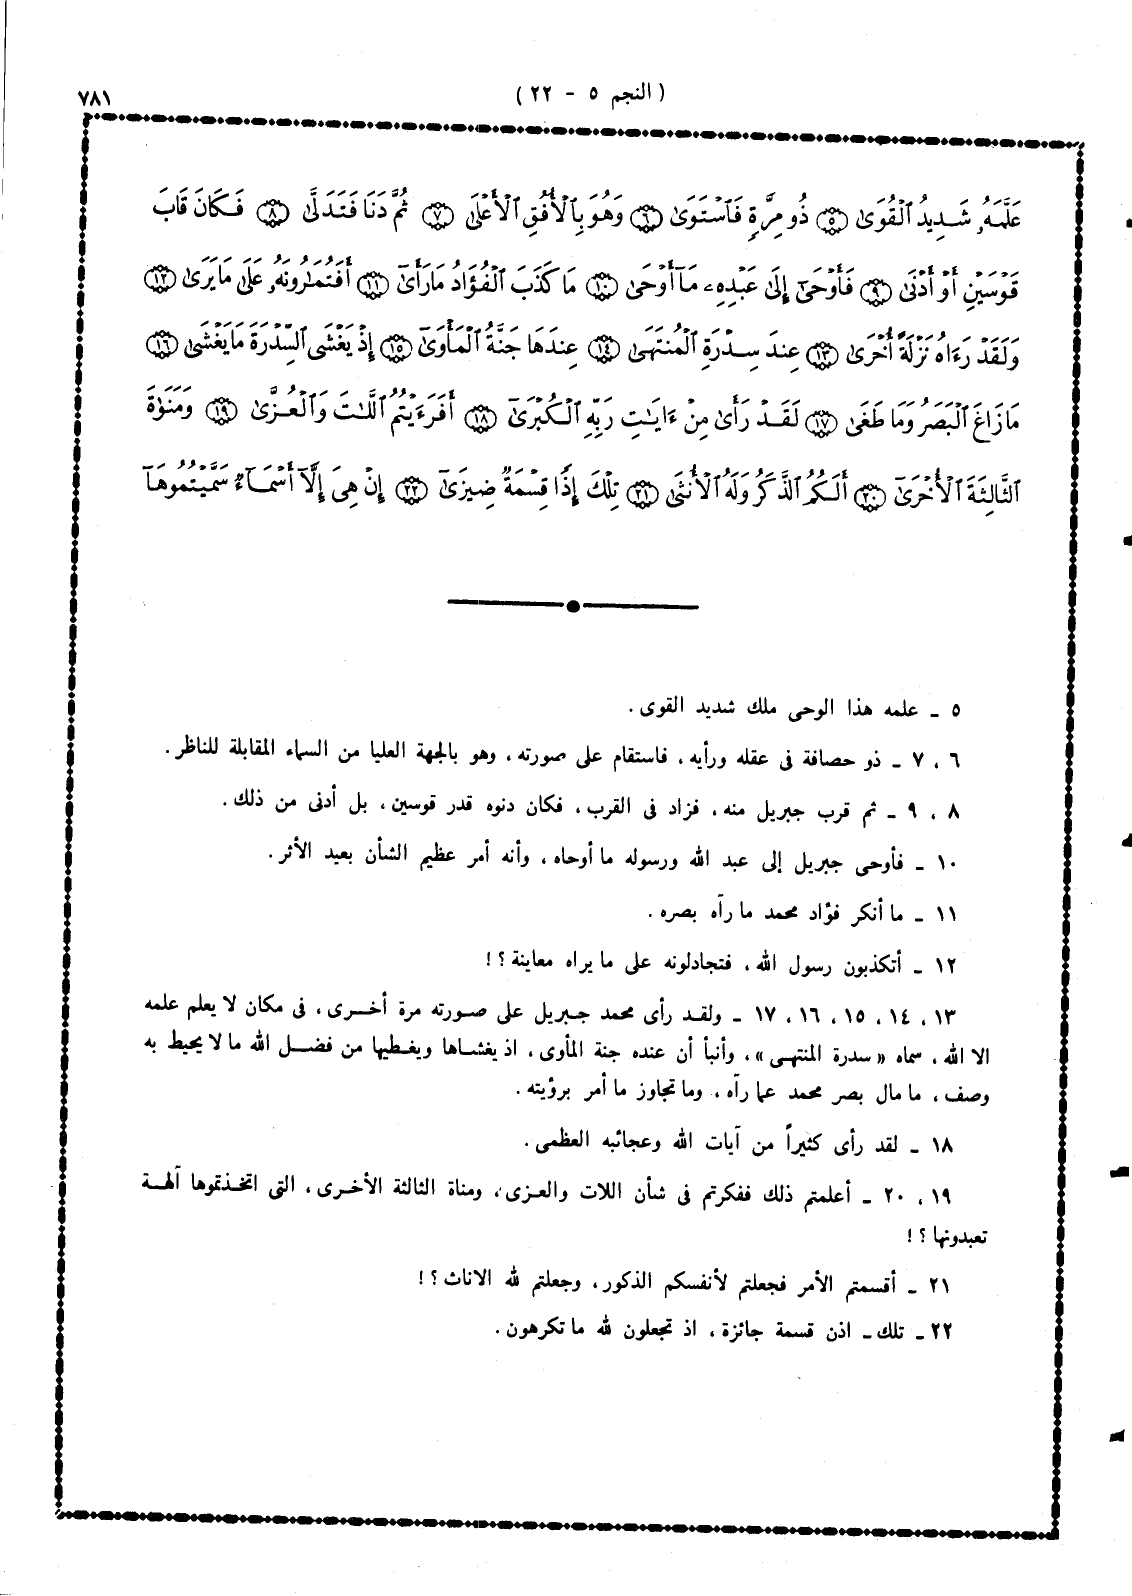 ( النجم ٥ - ٢٢ )
٧٨١
عَلَّمَهُۥ شَدِيدُ ٱلْقُوَىٰ ٥ ذُو مِرَّةٍ فَٱسْتَوَىٰ ٦ وَهُوَ بِٱلْأُفُقِ ٱلْأَعْلَىٰ ٧ ثُمَّ دَنَا فَتَدَلَّىٰ ٨ فَكَانَ قَابَ
قَوْسَيْنِ أَوْ أَدْنَىٰ ٩ فَأَوْحَىٰٓ إِلَىٰ عَبْدِهِۦ مَآ أَوْحَىٰ ١٠ مَا كَذَبَ ٱلْفُؤَادُ مَا رَأَىٰٓ ١١ أَفَتُمَٰرُونَهُۥ عَلَىٰ مَا يَرَىٰ ١٢
وَلَقَدْ رَءَاهُ نَزْلَةً أُخْرَىٰ ١٣ عِندَ سِدْرَةِ ٱلْمُنتَهَىٰ ١٤ عِندَهَا جَنَّةُ ٱلْمَأْوَىٰٓ ١٥ إِذْ يَغْشَى ٱلسِّدْرَةَ مَا يَغْشَىٰ ١٦
مَا زَاغَ ٱلْبَصَرُ وَمَا طَغَىٰ ١٧ لَقَدْ رَأَىٰ مِنْ ءَايَٰتِ رَبِّهِ ٱلْكُبْرَىٰٓ ١٨ أَفَرَءَيْتُمُ ٱللَّٰتَ وَٱلْعُزَّىٰ ١٩ وَمَنَوٰةَ
ٱلثَّالِثَةَ ٱلْأُخْرَىٰٓ ٢٠ أَلَكُمُ ٱلذَّكَرُ وَلَهُ ٱلْأُنثَىٰ ٢١ تِلْكَ إِذًا قِسْمَةٌ ضِيزَىٰٓ ٢٢ إِنْ هِىَ إِلَّآ أَسْمَآءٌ سَمَّيْتُمُوهَآ
٥ ـ علمه هذا الوحى ملك شديد القوى .
٦ ، ٧ ـ ذو حصافة فى عقله ورأيه ، فاستقام على صورته ، وهو بالجهة العليا من السماء المقابلة للناظر .
٨ ، ٩ ـ ثم قرب جبريل منه ، فزاد فى القرب ، فكان دنوه قدر قوسين ، بل أدنى من ذلك .
١٠ ـ فأوحى جبريل إلى عبد الله ورسوله ما أوحاه ، وأنه أمر عظيم الشأن بعيد الأثر .
١١ ـ ما أنكر فؤاد محمد ما رآه بصره .
١٢ ـ أتكذبون رسول الله ، فتجادلونه على ما يراه معاينة ؟ !
١٣ ، ١٤ ، ١٥ ، ١٦ ، ١٧ ـ ولقد رأى محمد جبريل على صورته مرة أخرى ، فى مكان لا يعلم علمه
الا الله ، سماه « سدرة المنتهى » ، وأنبأ أن عنده جنة المأوى ، اذ يغشاها ويغطيها من فضل الله ما لا يحيط به
وصف ، ما مال بصر محمد عما رآه ، وما تجاوز ما أمر برؤيته .
١٨ ـ لقد رأى كثيراً من آيات الله وعجائبه العظمى .
١٩ ، ٢٠ ـ أعلمتم ذلك ففكرتم فى شأن اللات والعزى ، ومناة الثالثة الأخرى ، التى اتخذتموها آلهة
تعبدونها ؟ !
٢١ ـ أقسمتم الأمر فجعلتم لأنفسكم الذكور ، وجعلتم لله الاناث ؟ !
٢٢ ـ تلك ـ اذن قسمة جائزة ، اذ تجعلون لله ما تكرهون .